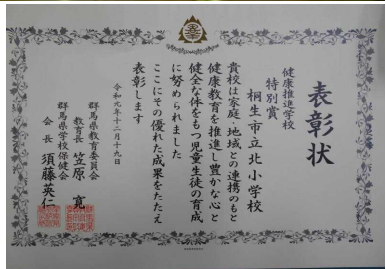 表彰状
健康推進学校
特別賞
桐生市立北小学校
貴校は家庭、地域との連携のもと
健康教育を推進し豊かな心と
健全な体をもつ児童生徒の育成
に努められました
ここにその優れた成果をたたえ
表彰します
令和元年十二月十九日
群馬県教育委員会
教育長 笠原 寛
群馬県学校保健会
会長 須藤英仁